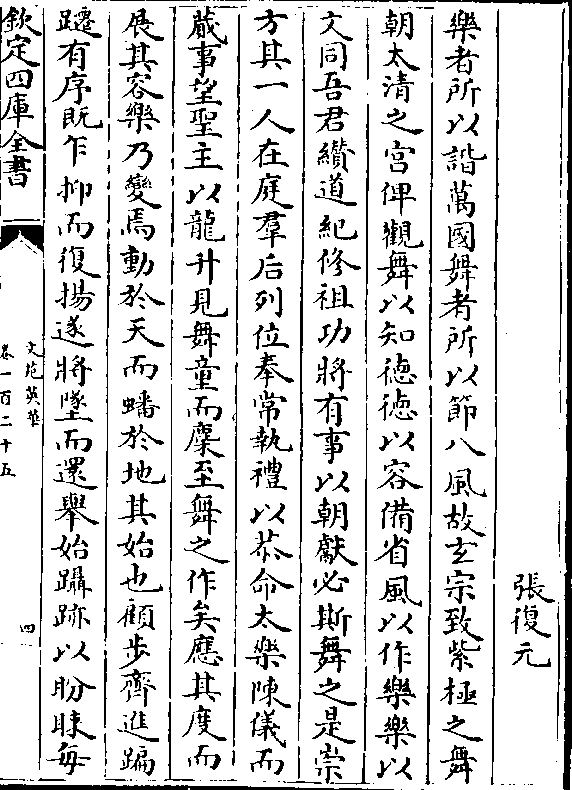 張復元
樂者所以諧萬國舞者所以節八風故玄宗致紫極之舞
朝太清之宮俾觀舞以知德德以容備省風以作樂樂以
文同吾君纘道紀修祖功將有事以朝獻必斯舞之是崇
方其一人在庭羣后列位奉常執禮以恭命太樂陳儀而
蕆事望聖主以龍升見舞童而麇至舞之作矣應其度而
展其容樂乃變焉動於天而蟠於地其始也顧步齊進蹁
躚有序既乍抑而復揚遂將墜而還舉始躡跡以盼睞每
欽定四庫全書
文苑英華
卷一百二十五
四